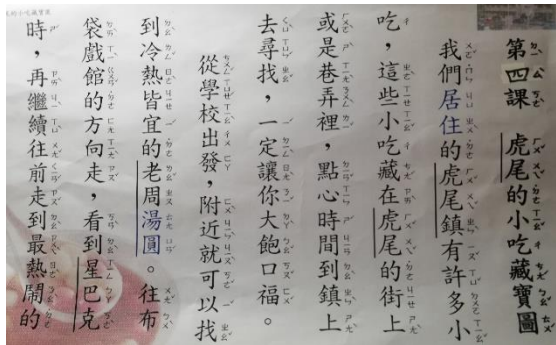 第四課 虎尾的小吃藏寶圖
我們居住的虎尾鎮有許多小
吃，這些小吃藏在虎尾的街上
或是巷弄裡，點心時間到鎮上
去尋找，一定讓你大飽口福。
從學校出發，附近就可以找
到冷熱皆宜的老周湯圓。往布
袋戲館的方向走，看到星巴克
時，再繼續往前走到最熱鬧的